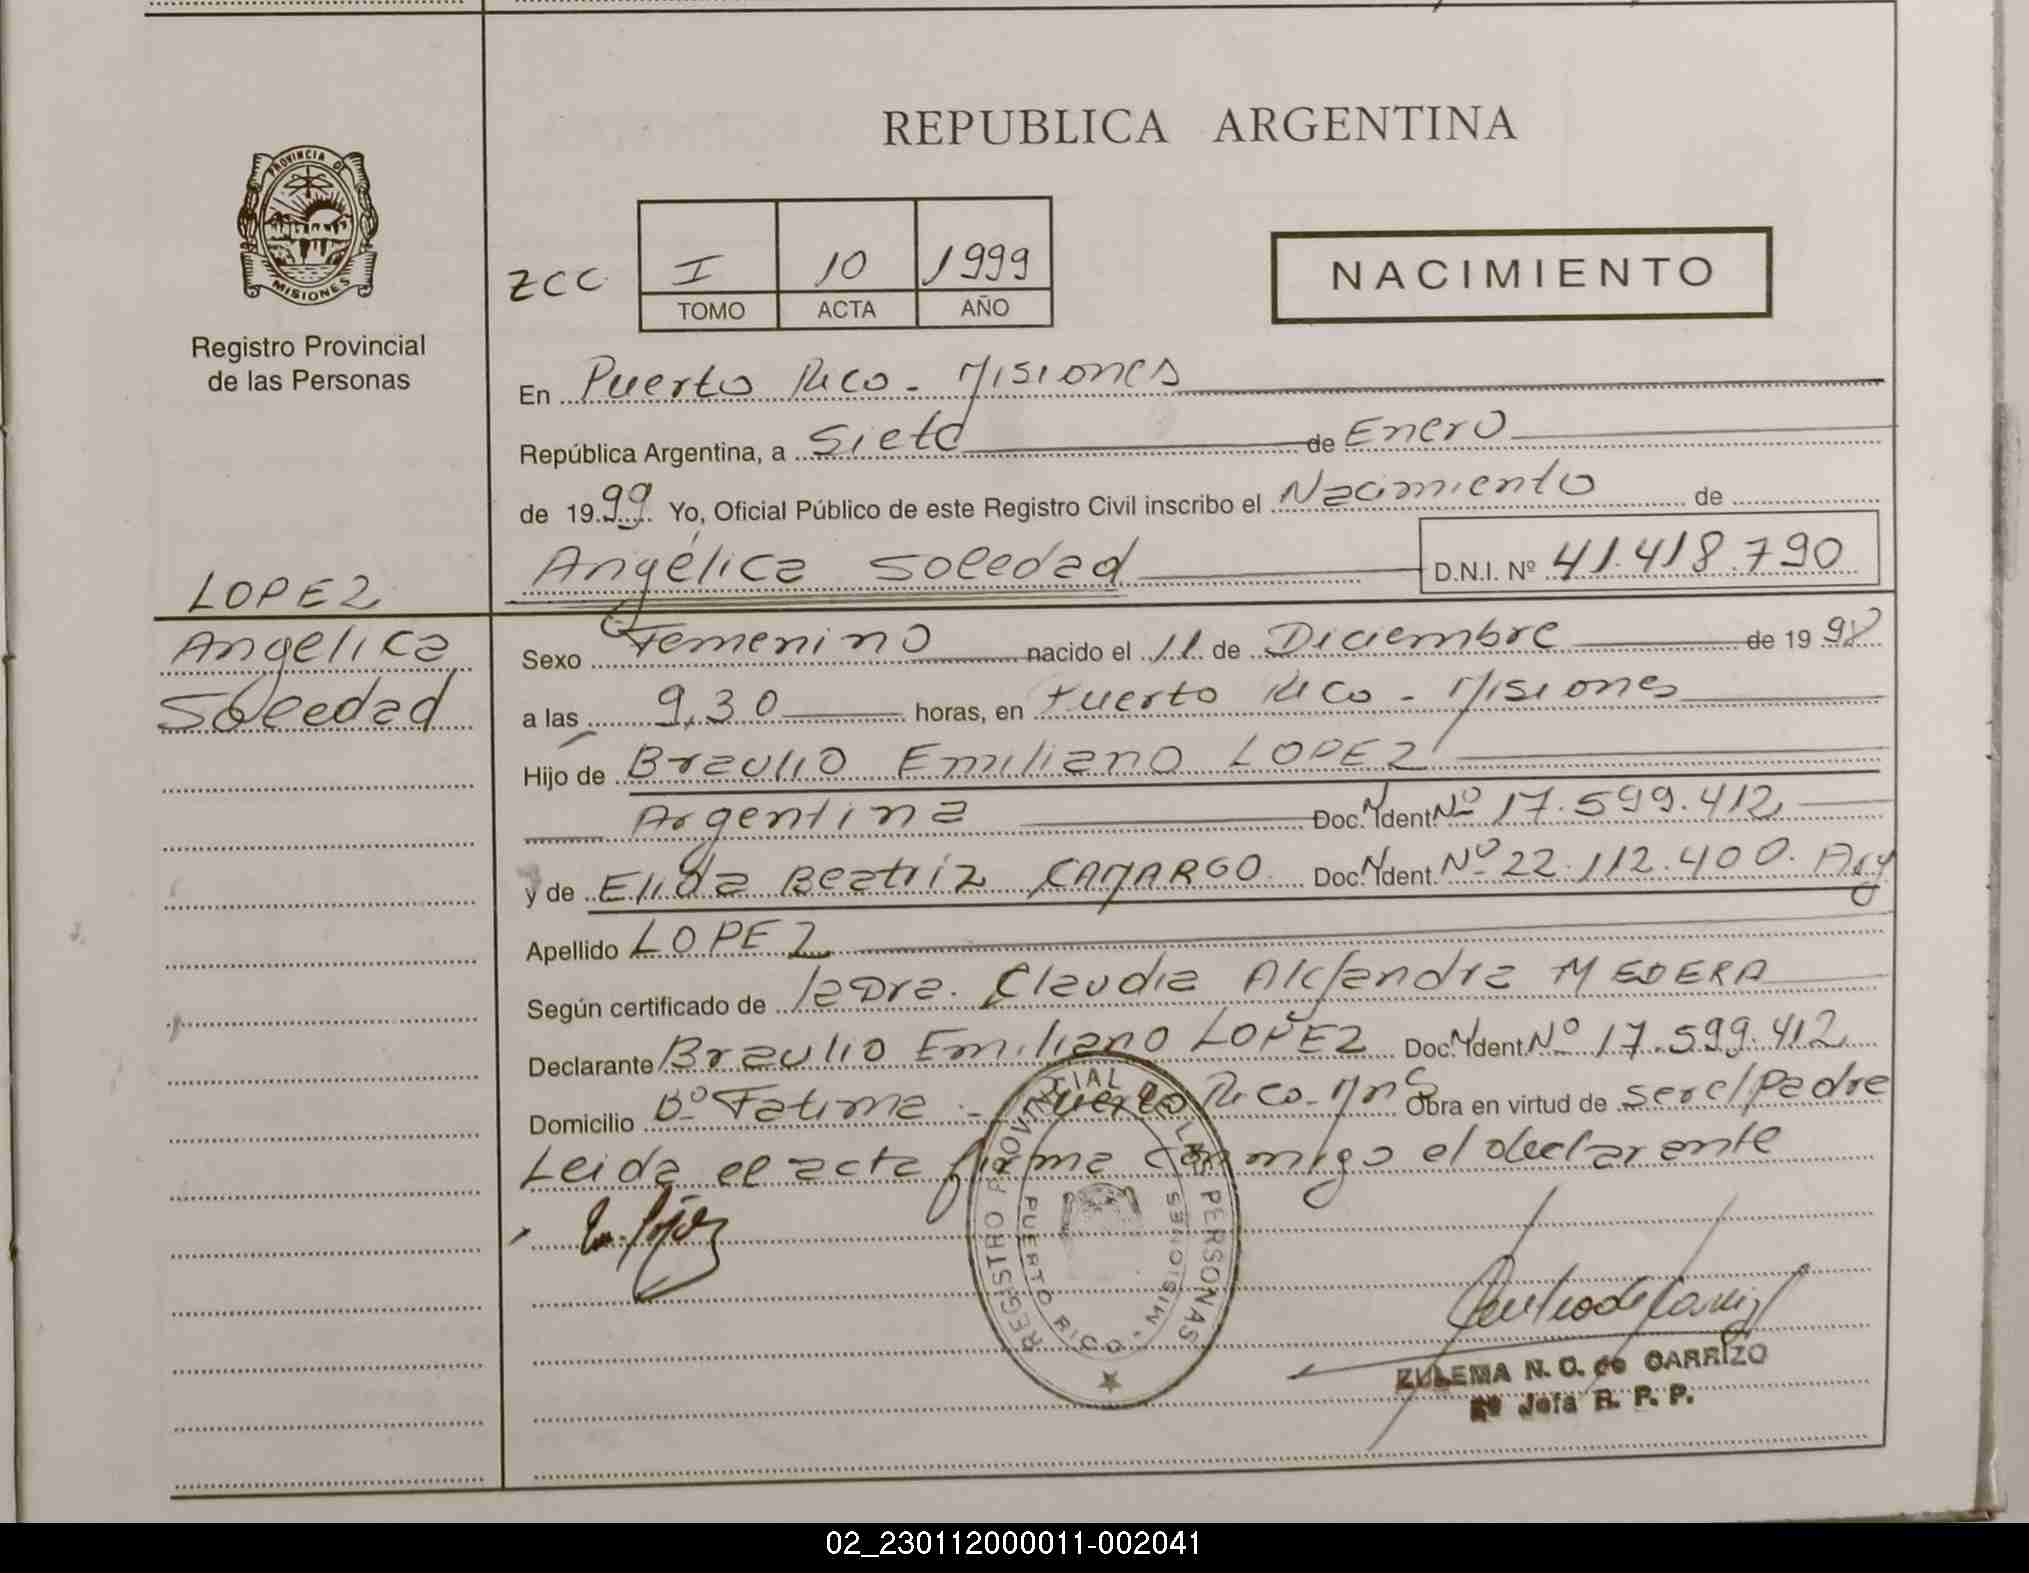 REPUBLICA ARGENTINA
PROVINCIA DE
MISIONES
Registro Provincial
de las Personas
ZCC
I 10 1999
TOMO ACTA AÑO
NACIMIENTO
En Puerto Rico - Misiones
República Argentina, a Siete de Enero
de 1999 Yo, Oficial Público de este Registro Civil inscribo el Nacimiento de
Angélica Soledad D.N.I. Nº 41.418.790
LOPEZ
Angélica
Soledad
Sexo Femenino nacido el 11 de Diciembre de 1998
a las 9,30 horas, en Puerto Rico - Misiones
Hijo de Braulio Emiliano LOPEZ
Argentina Doc. Ident. Nº 17.599.412
y de Elida Beatríz CAMARGO Doc. Ident. Nº 22.112.400. Arg
Apellido LOPEZ
Según certificado de la Dra. Claudia Alejandra MEDERA
Declarante Braulio Emiliano LOPEZ Doc. Ident. Nº 17.599.412
Domicilio Bº Fatima - Puerto Rico - Mnes Obra en virtud de ser el Padre
Leida el acta firma conmigo el declarante
REGISTRO PROVINCIAL DE LAS PERSONAS
PUERTO RICO - MISIONES
ZULEMA N. C. de CARRIZO
2º Jefa R. P. P.
02_230112000011-002041